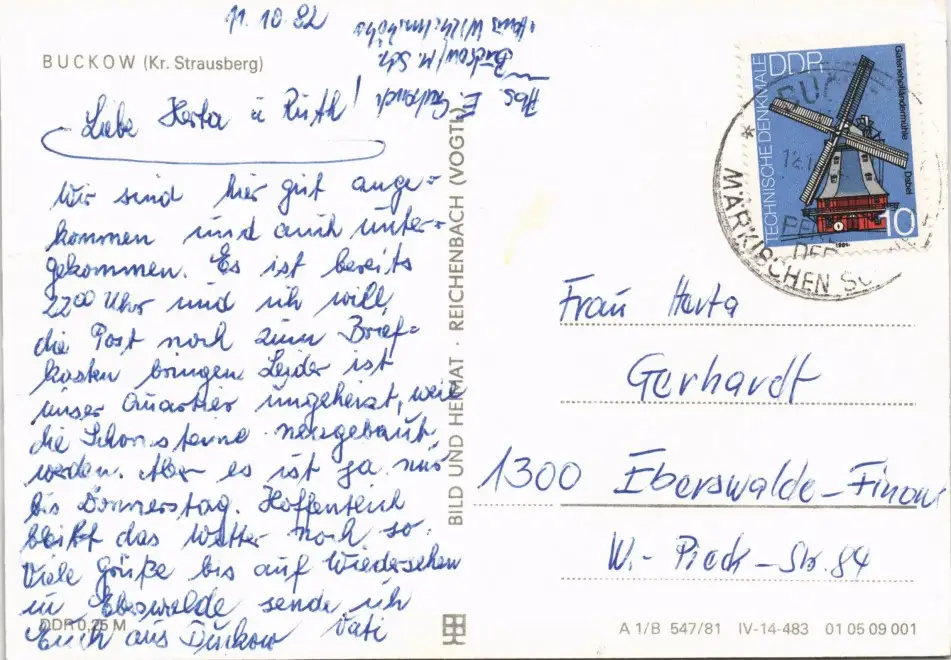 11.10.82
Abs. E.
Buckow/M. Sch.
Haus Wilhelmshöhe
BUCKOW (Kr. Strausberg)
Liebe Herta u Ruth!
Wir sind hier gut ange=
kommen und auch unter=
gekommen. Es ist bereits
22 00 Uhr und ich will
die Post noch zum Brief=
kasten bringen. Leider ist
unser Quartier ungeheizt, weil
die Schornsteine neugebaut
werden. Aber es ist ja nur
bis Donnerstag. Hoffentlich
bleibt das Wetter noch so.
Viele Grüße bis auf Wiedersehen
in Eberswalde sende ich
Euch aus Buckow Vati
DDR 0,25 M
BILD UND HEIMAT · REICHENBACH (VOGTL)
DDR
TECHNISCHE DENKMALE
Galerieholländermühle Dabel
10
1981
MÄRKISCHEN
Frau Herta
Gerhardt
1300 Eberswalde-Finow
W.-Pieck-Str. 84
A 1/B 547/81 IV-14-483 01 05 09 001